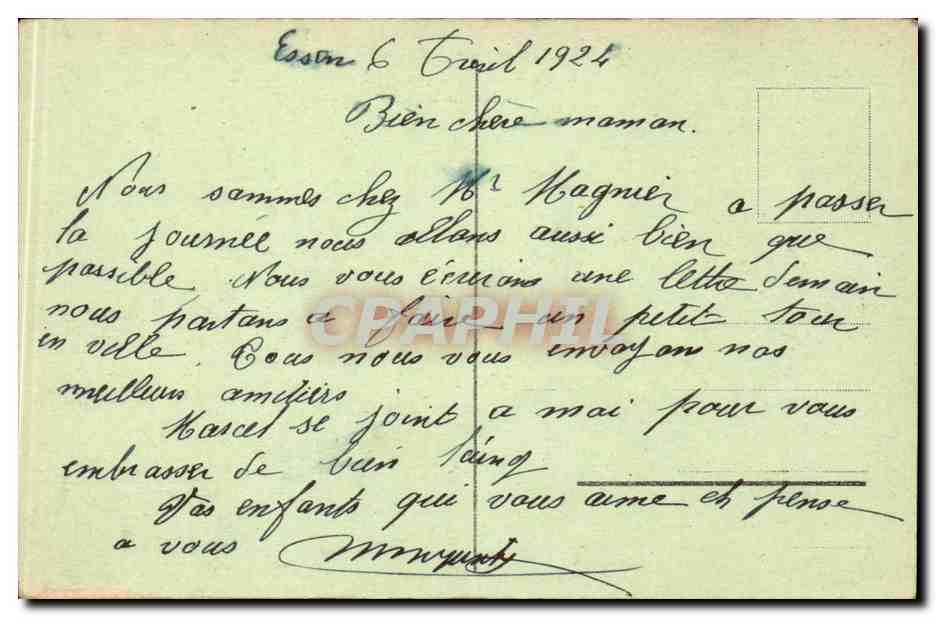 Essen 6 Avril 1924
Bien chère maman.
Nous sommes chez Mr Magnier a passer
la journée nous allons aussi bien que
possible Nous vous écrirons une lettre demain
nous partons a faire un petit tour
en ville. Tous nous vous envoyons nos
meilleurs amitiers
Marcel se joint a moi pour vous
embrasser de bien loing
Vos enfants qui vous aime et pense
a vous
CPAPHIL